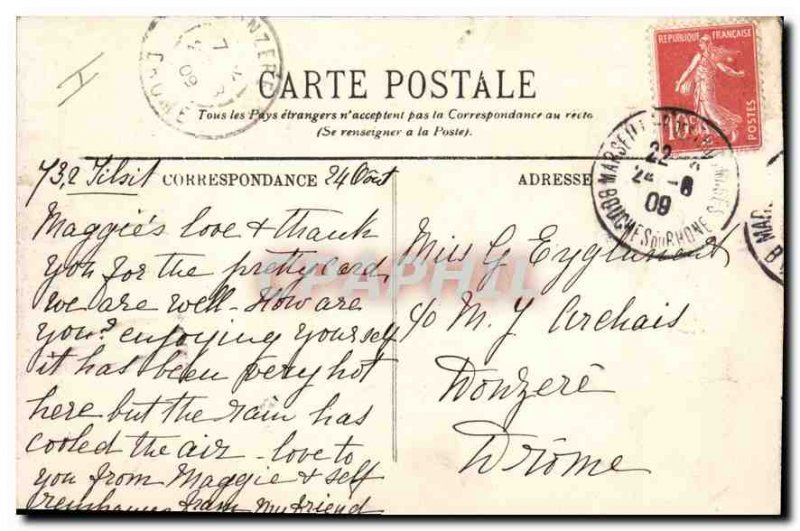 DONZERE
7
09
DROME
CARTE POSTALE
Tous les Pays étrangers n'acceptent pas la Correspondance au recto
(Se renseigner a la Poste).
REPUBLIQUE FRANÇAISE
10c
POSTES
MARSEILLE
22
24-8
09
BOUCHES DU RHONE
MAR
B
73,2 Tilsit
CORRESPONDANCE
24 Oaut
ADRESSE
Maggie's love & thank
you for the pretty card,
we are well - How are
you? enjoying yourself
it has been very hot
here but the rain has
cooled the air - love to
you from Maggie & self
from my friend
Miss G
c/o M. J Archais
Donzerè
Drôme
CPAPHIL